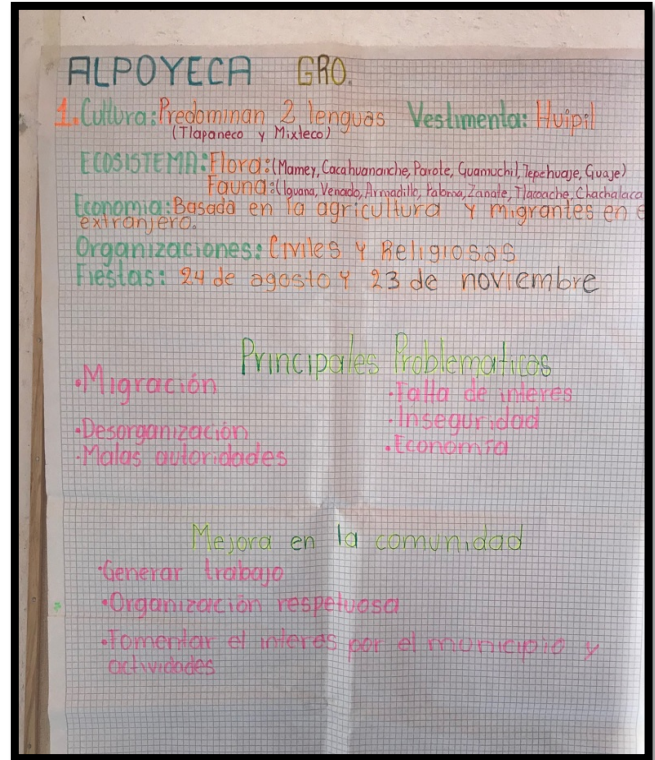 ALPOYECA GRO.
1. Cultura: Predominan 2 lenguas Vestimenta: Huipil
(Tlapaneco y Mixteco)
ECOSISTEMA: Flora: (Mamey, Cacahuananche, Parote, Guamuchil, Tepehuaje, Guaje)
Fauna: (Iguana, Venado, Armadillo, Paloma, Zanate, Tlacoache, Chachalaca
Economia: Basada en la agricultura y migrantes en e
extranjero.
Organizaciones: Civiles y Religiosas
Fiestas: 24 de agosto y 23 de noviembre
Principales Problematicas
•Migración
•Desorganización
•Malas autoridades
•Falta de interes
•Inseguridad
•Economía
Mejora en la comunidad
•Generar trabajo
•Organización respetuosa
•Fomentar el interes por el municipio y
actividades